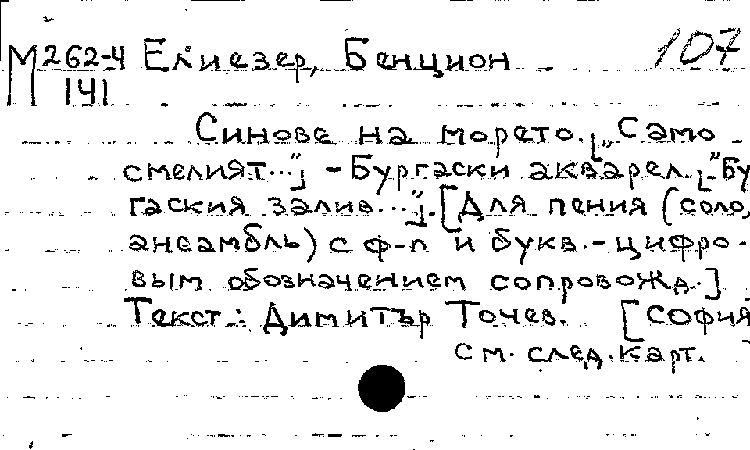 М 262-4 Елиезер, Бенцион 107
141
Синове на морето. [„Само
смелият..."] - Бургаски акварел. ["Бу
гаския залив..."]. [Для пения (соло,
ансамбль) с ф-п и букв.-цифро-
вым обозначением сопровожд.]
Текст: Димитър Точев. [София
см. след. карт.